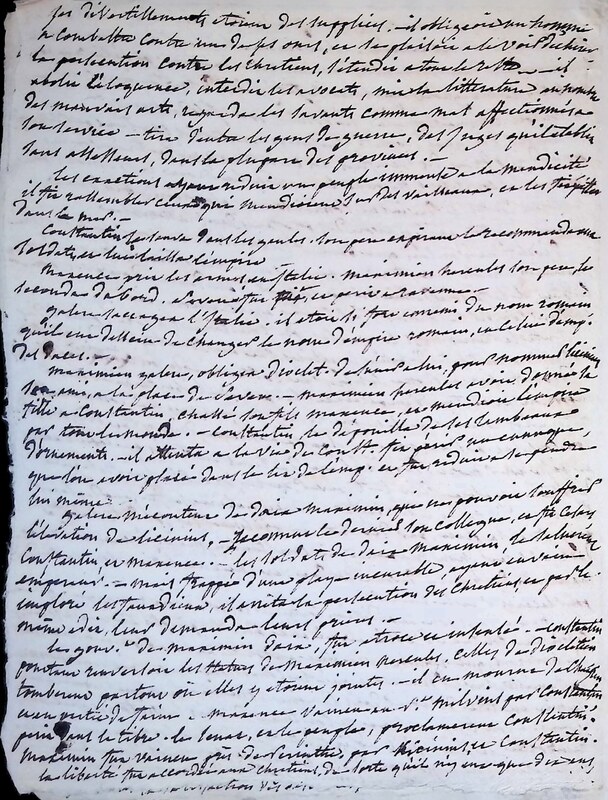 ses divertissements etoient des supplices. - il obligeoit un homme
a combattre contre un de ses ours, et se plaisoit a le voir dechirer
la persecution contre les chretiens, s'etendit a tout le reste - il
abolit l'eloquence, interdit les avocats, mit la litterature au nombre
des mauvais arts, regarda les savants comme mal affectionnés a
son service - tira d'entre les gens de guerre, des juges qu'il etablit
sans assesseurs, dans la plupart des provinces. -
les exactions ayant reduit un peuple immense a la mendicité
il fit rassembler ceux qui mendioient sur des vaisseaux, et les
dans la mer. -
Constantin se sauve dans les gaules. son pere expirant le recommande aux
soldats, et lui laissa l'empire
maxence prit les armes, en italie. maximien hercules son pere, le
seconda d'abord. severe fut et perit a ravenne. -
galere saccagea l'Italie. il etoit si fort ennemi du nom romain
qu'il eut dessein de changer le nom d'empire romain, en celui d'emp.
des daces. -
maximien galere, obligea Dioclet. de venir a lui, pour nommer licinius
son ami, a la place de severe. - maximien hercules avoit donné sa
fille a Constantin, chassé son fils maxence, et mendioit l'empire
par tout le monde. - Constantin le depouilla de ses
d'ornements. - il attenta a la vie de Const. fit périr un eunuque,
que l'on avoit placé dans le lit de l'emp. et fut reduit a se pendre
lui même.
galere mécontent de daia maximin, qui ne pouvoit souffrir
l'élévation de licinius, - reconnut le dernier son collegue, et fit Cesars
Constantin et maxence. - les soldats de daia maximin, le saluerent
empereur. - mais frappé d'une playe incurable, ayant en vain
imploré les faux dieux, il arreta la persecution des chretiens, et par le
même edit, leur demanda leurs prieres. -
les gouv.ts de maximin daia, fut atroce et insensé - Constantin
pourtant renversoit les statues de maximien hercules. celles de diocletien
tomberent partout où elles y etoient jointes. - il en mourut de chagrin
et en partie de faim. - maxence vaincu au pt. milvius par Constantin
perit dans le tibre. le senat, et le peuple, proclamerent Constantin.
maximin fut vaincu près de par licinius, et Constantin.
la liberté fut accordée aux chretiens, de sorte qu'il n'y eut que dix ans